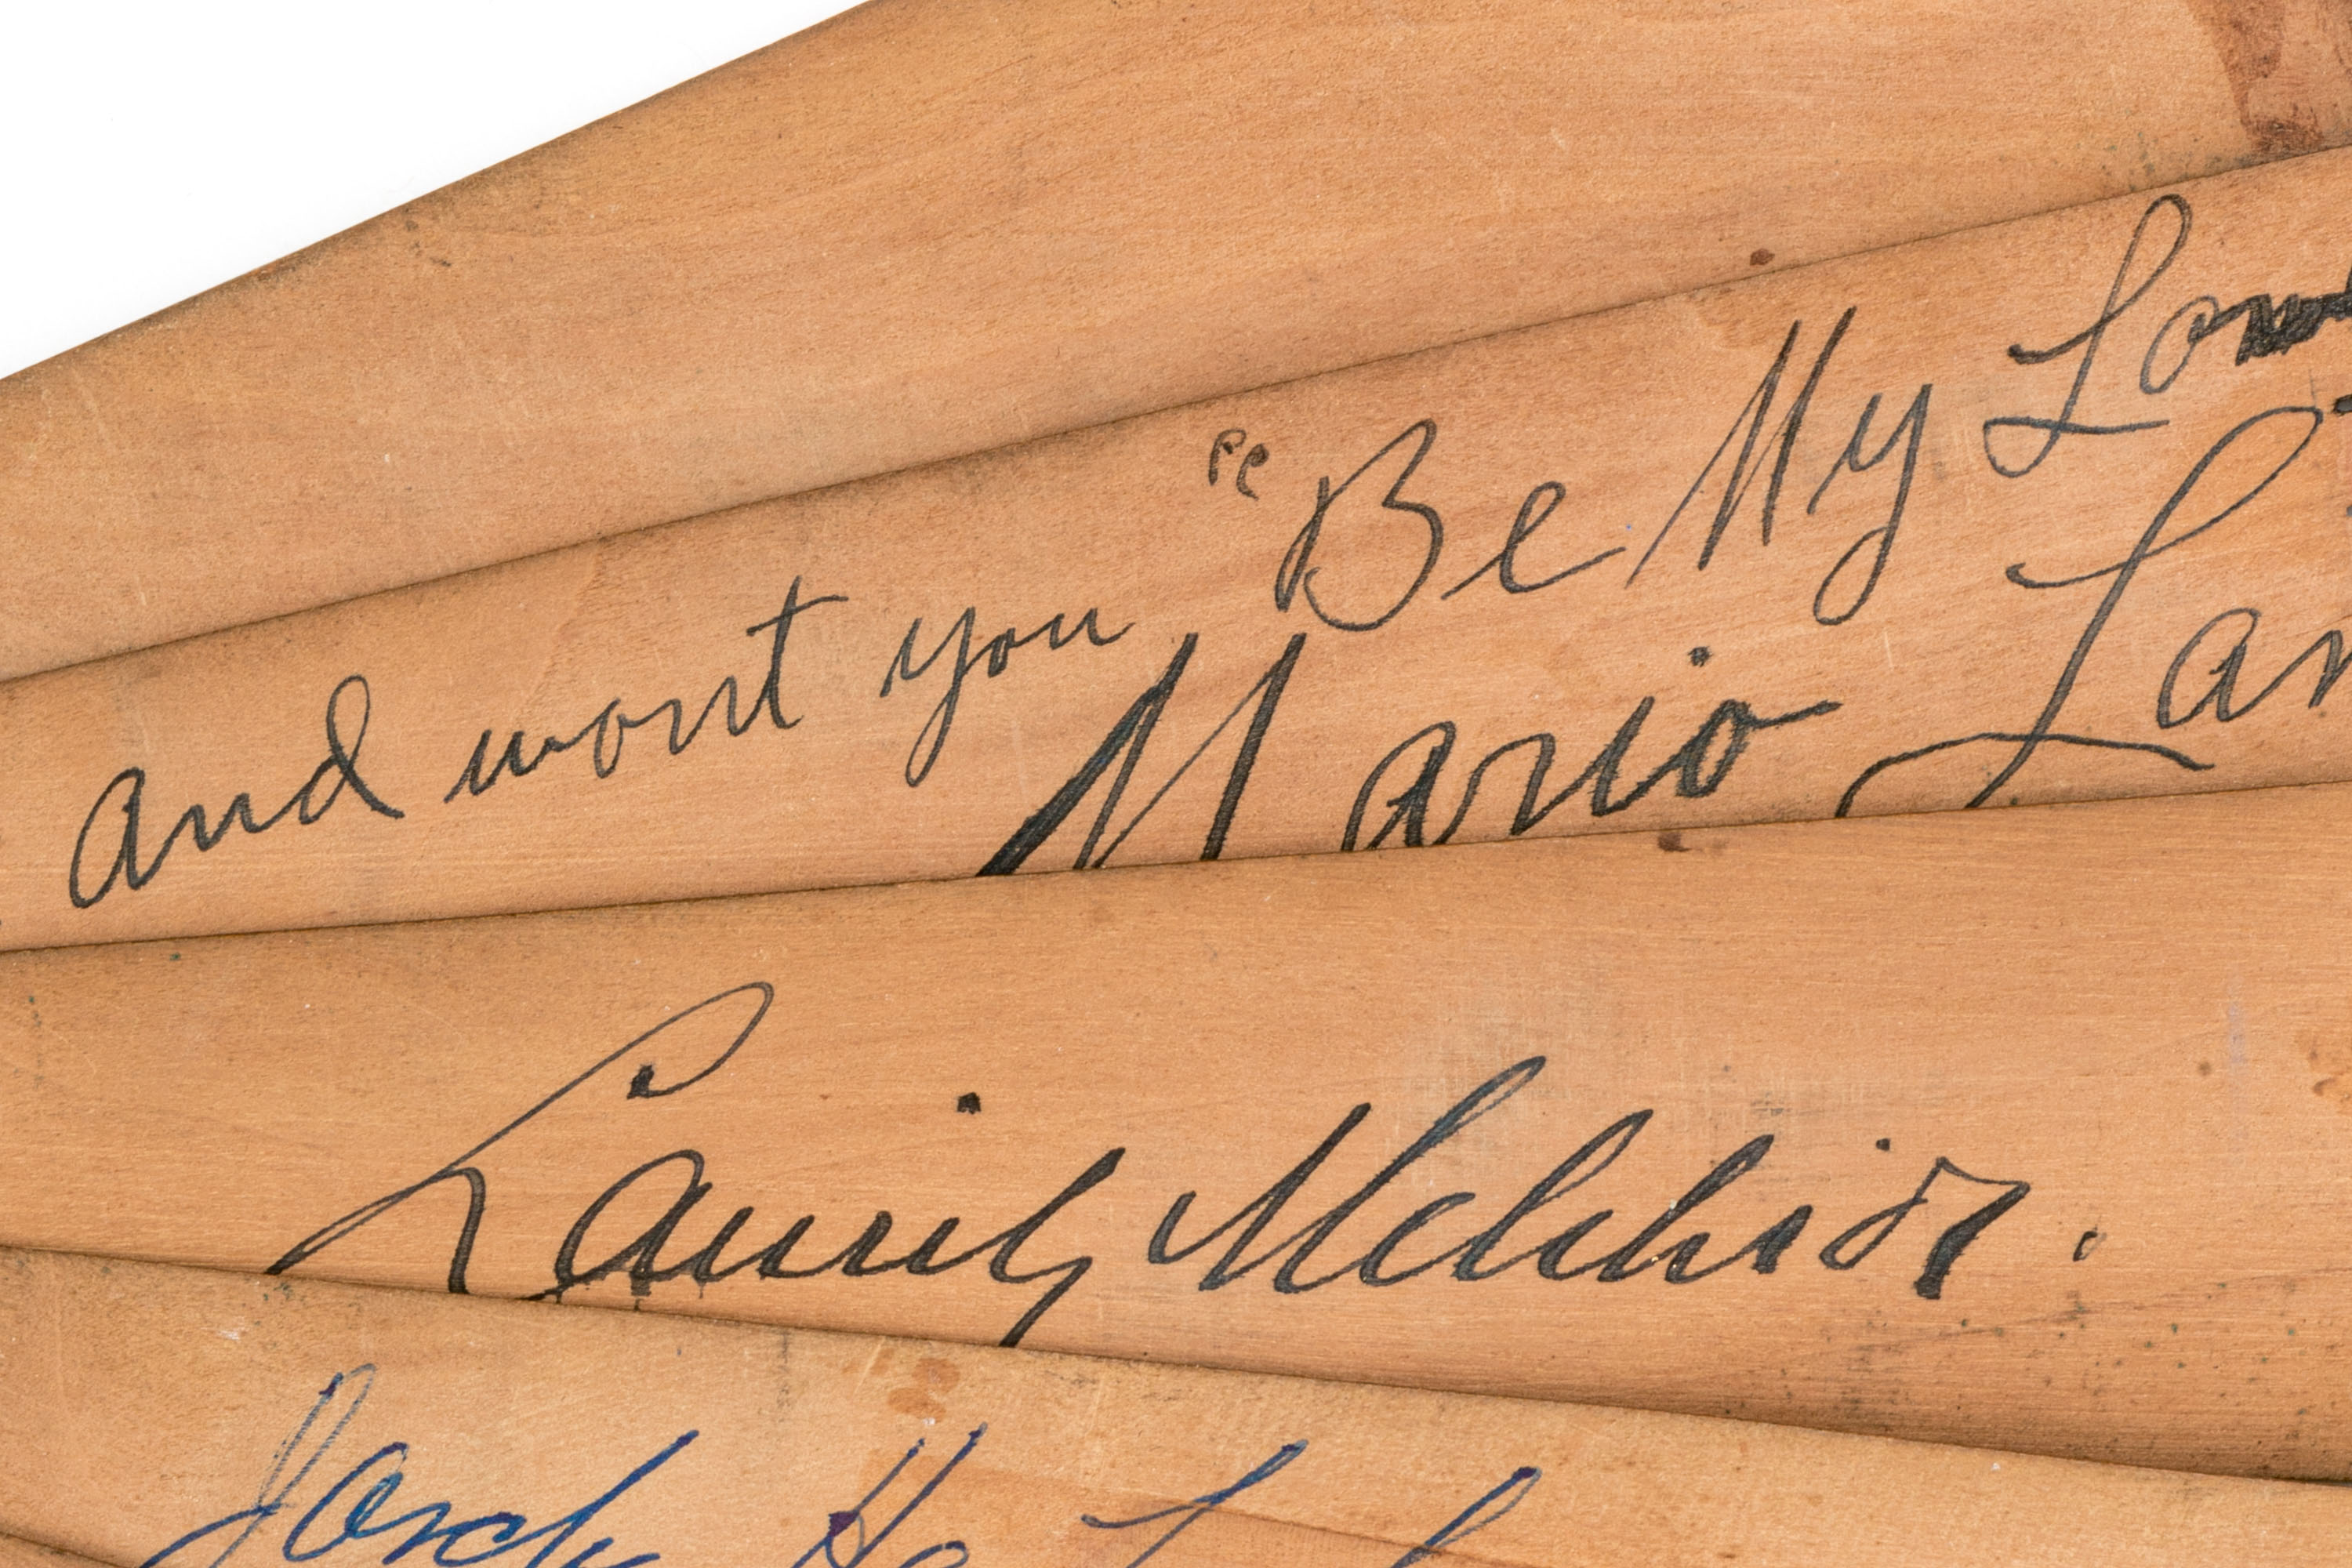 and wont you "Be My Lov
Mario Lan
Lauritz Melchior.